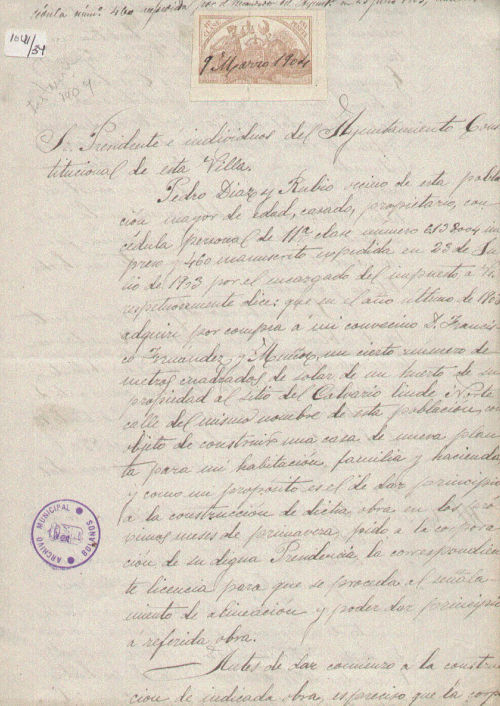 cédula núm.º 460 espedida por el
1041/54
9 Marzo 1904
1904
Sr. Presidente é individuos del Ayuntamiento Cons
titucional de esta Villa.
Pedro Diaz y Rubio vecino de esta pobla
ción mayor de edad, casado, propietario, con
cédula personal de 11ª clase número 613800 im
preso y 460 manuscrito espedida en 23 de Ju
lio de 1903 por el encargado del impuesto á V.
respetuosamente dice: que en el año último de 190
adquirí por compra á mi convecino D. Francis
co Fernandez y Muñoz, un cierto número de
metros cuadrados de solar de un huerto de su
propiedad al sitio del Calvario linde Norte
calle del mismo nombre de esta población, con
objeto de construir una casa de nueva plan
ta para mi habitación, familia y hacienda
y como mi propósito es el de dar principio
á la construccion de dicha obra en los pro
ximos meses de primavera, pido á la corpora
ción de su digna Presidencia, la correspondien
te licencia para que se proceda al señala
miento de alineacion y poder dar principio
á referida obra.
Antes de dar comienzo á la construc
cion de indicada obra, es preciso que la corpo
ARCHIVO MUNICIPAL
BOLAÑOS